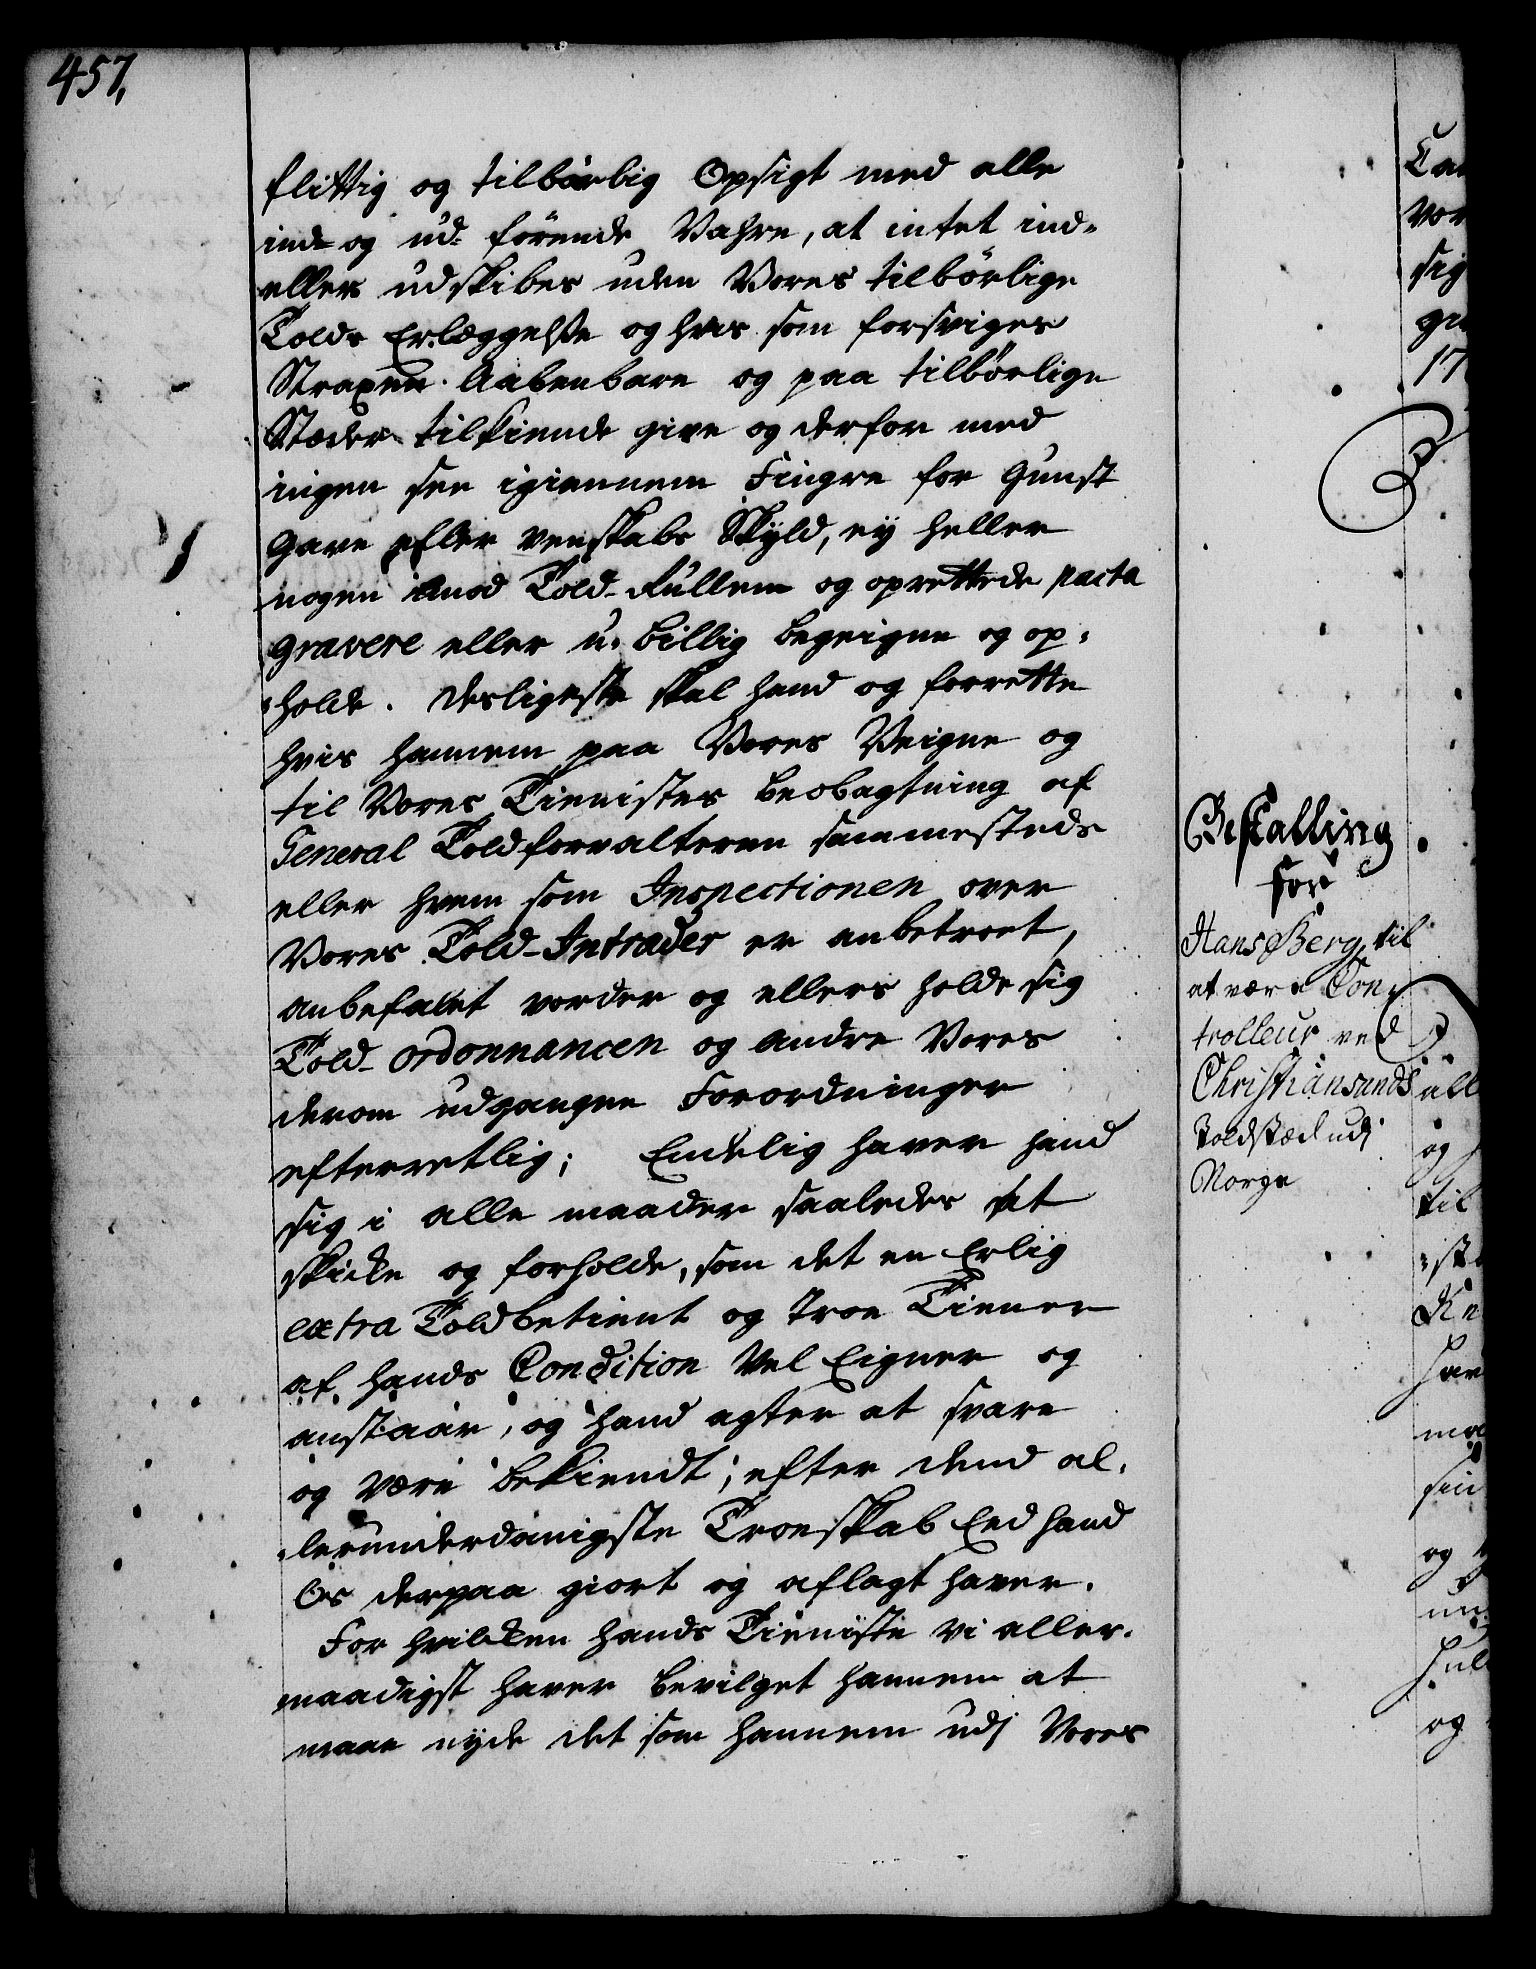 457.
flittig og tilbørlig Opsigt med alle
ind- og ud- førende Vahre, at intet ind-
eller udskibes uden Vores tilbørlige
Tolds Erlæggelse og hvis som forsviges
Straxen Aabenbare og paa tilbørlige
Stæder tilkiende give og derfor med
ingen see igiennem Fingre for Gunst
Gave eller venskabs Skyld, ey heller
nogen imod Told-Rullen og oprettede pacta
gravere eller u-billig begeigne og op-
holde. Desligeste skal hand og forrette
hvis hannem paa Vores Veigne og
til Vores Tienistes beobagtning af
General Toldforvalteren sammesteds
eller hvem som Inspectionen over
Vores Told-Intrader er anbetroet,
anbefalet vorder og ellers holde sig
Told-ordonnancen og andre Vores
derom udgangne Forordninger
efterretlig; Endelig haver hand
sig i alle maader saaledes at
skicke og forholde, som det en Erlig
extra Toldbetient og Troe Tiener
af hands Condition Vel Eigner og
anstaar, og hand agter at svare
og være bekiendt; efter dend al-
lerunderdanigste Troeskab Eed hand
Os derpaa giort og aflagt haver.
For hvilcken hands Tieniste vi aller-
naadigst haver bevilget hannem at
maae nyde det som hannem udj Vores
Bestalling
for
Hans Berg til
at være Con-
trolleur ved
Christiansands
Toldstæd udj
Norge